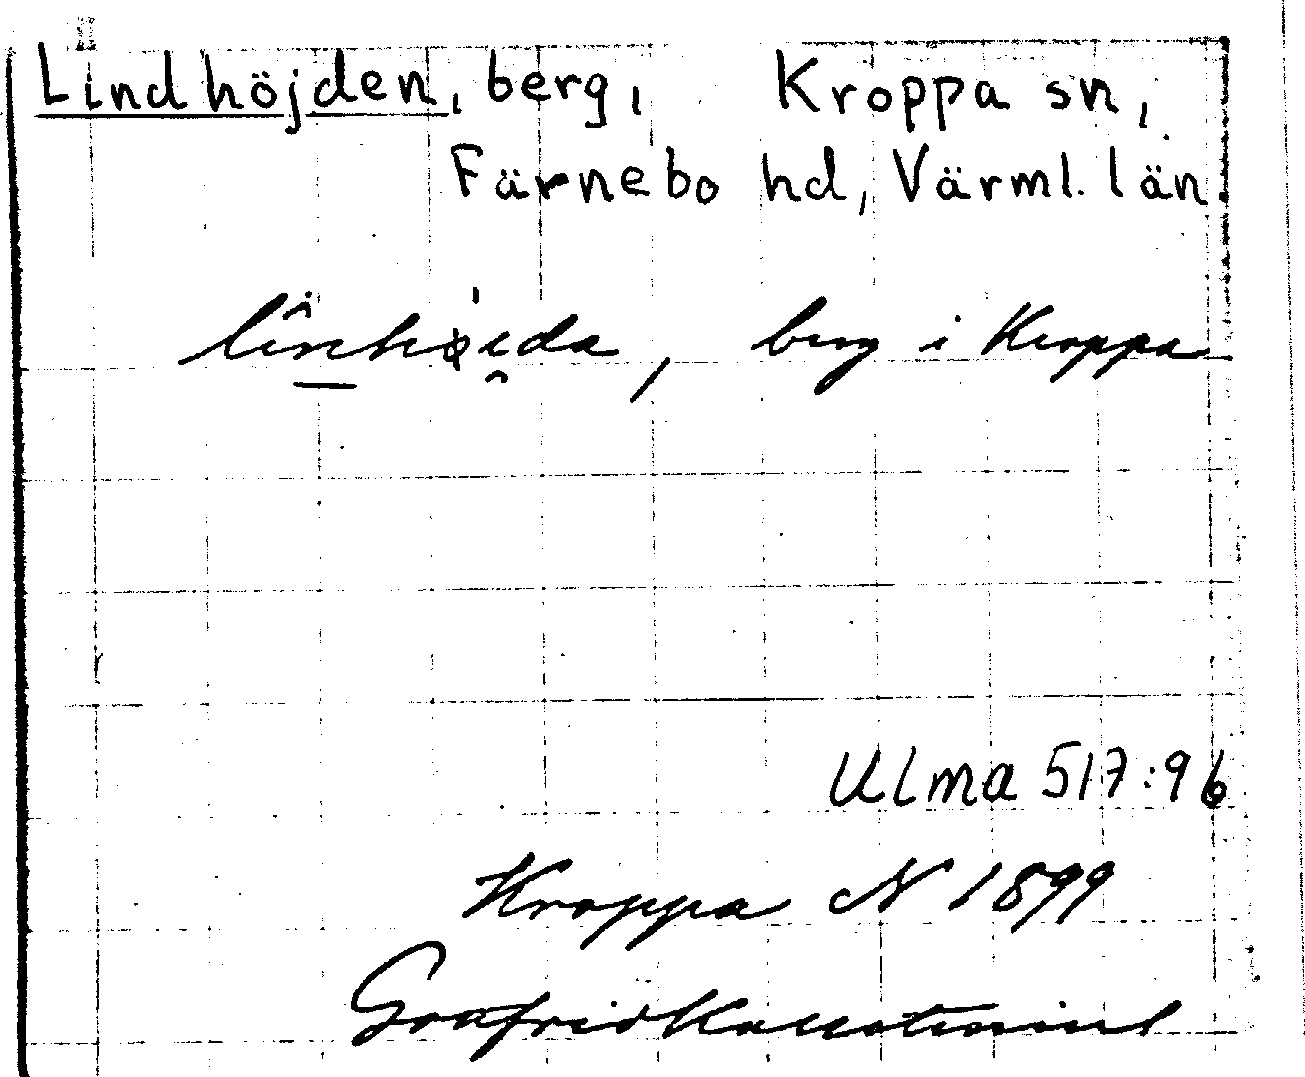 Lindhöjden, berg, Kroppa sn,
Färnebo hd, Värml. län
linhøida, berg i Kroppa
Ulma 517:96
Kroppa N 1899
Gotfrid Kallstenius